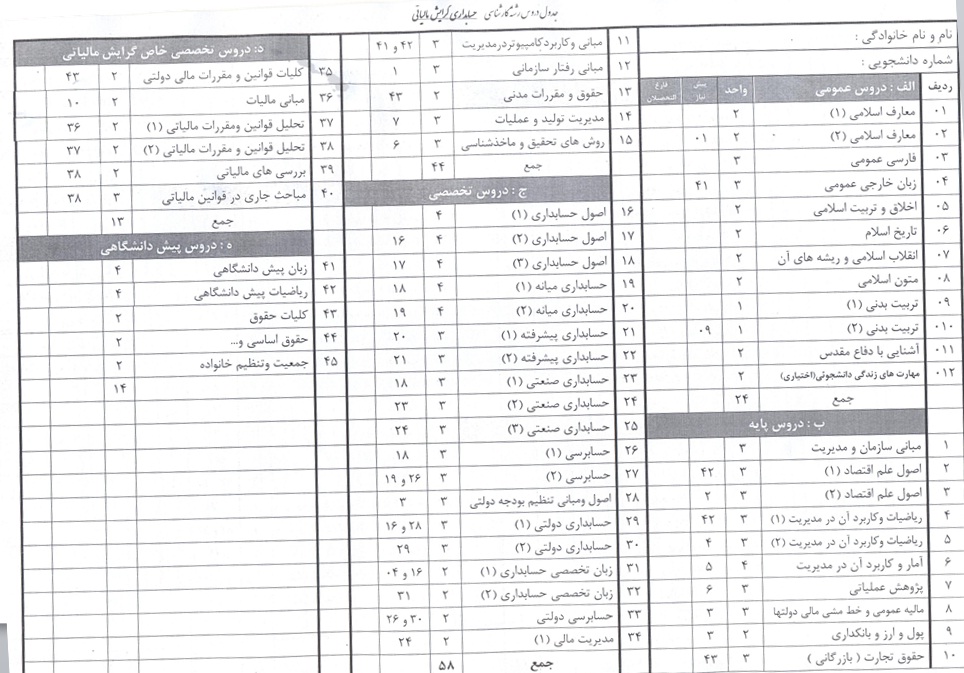 جدول دروس رشته کارشناسی حسابداری گرایش مالیاتی
نام و نام خانوادگی :
شماره دانشجویی :
ردیف الف : دروس عمومی واحد پیش نیاز فارغ التحصیلان
۰۱ معارف اسلامی (۱) ۲
۰۲ معارف اسلامی (۲) ۲ ۰۱
۰۳ فارسی عمومی ۳
۰۴ زبان خارجی عمومی ۳ ۴۱
۰۵ اخلاق و تربیت اسلامی ۲
۰۶ تاریخ اسلام ۲
۰۷ انقلاب اسلامی و ریشه های آن ۲
۰۸ متون اسلامی ۲
۰۹ تربیت بدنی (۱) ۱
۰۱۰ تربیت بدنی (۲) ۱ ۰۹
۰۱۱ آشنایی با دفاع مقدس ۲
۰۱۲ مهارت های زندگی دانشجوئی(اختیاری) ۲
جمع ۲۴
ب : دروس پایه
۱ مبانی سازمان و مدیریت ۳
۲ اصول علم اقتصاد (۱) ۳ ۴۲
۳ اصول علم اقتصاد (۲) ۳ ۲
۴ ریاضیات وکاربرد آن در مدیریت (۱) ۳ ۴۲
۵ ریاضیات وکاربرد آن در مدیریت (۲) ۳ ۴
۶ آمار و کاربرد آن در مدیریت ۴ ۵
۷ پژوهش عملیاتی ۳ ۶
۸ مالیه عمومی و خط مشی مالی دولتها ۳ ۳
۹ پول و ارز و بانکداری ۲ ۳
۱۰ حقوق تجارت ( بازرگانی ) ۳ ۴۳
۱۱ مبانی وکاربردکامپیوتردرمدیریت ۳ ۴۲ و ۴۱
۱۲ مبانی رفتار سازمانی ۳ ۱
۱۳ حقوق و مقررات مدنی ۲ ۴۳
۱۴ مدیریت تولید و عملیات ۳ ۷
۱۵ روش های تحقیق و ماخذشناسی ۳ ۶
جمع ۴۴
ج : دروس تخصصی
۱۶ اصول حسابداری (۱) ۴
۱۷ اصول حسابداری (۲) ۴ ۱۶
۱۸ اصول حسابداری (۳) ۴ ۱۷
۱۹ حسابداری میانه (۱) ۴ ۱۸
۲۰ حسابداری میانه (۲) ۴ ۱۹
۲۱ حسابداری پیشرفته (۱) ۳ ۲۰
۲۲ حسابداری پیشرفته (۲) ۳ ۲۱
۲۳ حسابداری صنعتی (۱) ۳ ۱۸
۲۴ حسابداری صنعتی (۲) ۳ ۲۳
۲۵ حسابداری صنعتی (۳) ۳ ۲۴
۲۶ حسابرسی (۱) ۳ ۱۸
۲۷ حسابرسی (۲) ۳ ۲۶ و ۱۹
۲۸ اصول ومبانی تنظیم بودجه دولتی ۳ ۳
۲۹ حسابداری دولتی (۱) ۳ ۲۸ و ۱۶
۳۰ حسابداری دولتی (۲) ۳ ۲۹
۳۱ زبان تخصصی حسابداری (۱) ۲ ۱۶ و ۰۴
۳۲ زبان تخصصی حسابداری (۲) ۲ ۳۱
۳۳ حسابرسی دولتی ۲ ۳۰ و ۲۶
۳۴ مدیریت مالی (۱) ۲ ۲۴
جمع ۵۸
د: دروس تخصصی خاص گرایش مالیاتی
۳۵ کلیات قوانین و مقررات مالی دولتی ۲ ۴۳
۳۶ مبانی مالیات ۲ ۱۰
۳۷ تحلیل قوانین ومقررات مالیاتی (۱) ۲ ۳۶
۳۸ تحلیل قوانین و مقررات مالیاتی (۲) ۲ ۳۷
۳۹ بررسی های مالیاتی ۲ ۳۸
۴۰ مباحث جاری در قوانین مالیاتی ۳ ۳۸
جمع ۱۳
ه : دروس پیش دانشگاهی
۴۱ زبان پیش دانشگاهی ۴
۴۲ ریاضیات پیش دانشگاهی ۴
۴۳ کلیات حقوق ۲
۴۴ حقوق اساسی و... ۲
۴۵ جمعیت وتنظیم خانواده ۲
۱۴